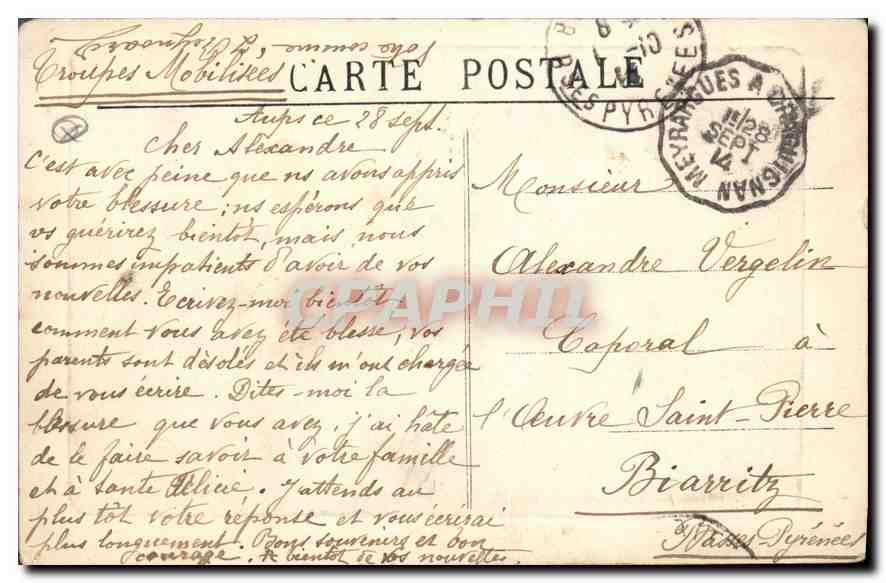 Troupes Mobilisées
CARTE POSTALE
Aups ce 28 sept.
Cher Alexandre
C'est avec peine que ns avous appris
votre blessure; ns espérons que
vs guérirez bientôt, mais nous
sommes impatients d'avoir de vos
nouvelles. Ecrivez-moi bientôt
comment vous avez été blessé, vos
parents sont désolés et ils m'ont chargée
de vous écrire. Dites-moi la
blessure que vous avez, j'ai hâte
de le faire savoir à votre famille
et à tante Félicie. J'attends au
plus tôt votre réponse et vous écrirai
plus longuement. Bons souvenirs et bon
courage. A bientôt de vos nouvelles.
Monsieur
Alexandre Vergelin
Caporal à
l'Œuvre Saint-Pierre
Biarritz
Basses-Pyrénées
MEYRARGUES A DRAGUIGNAN
28
SEPT
14
BSES PYRENEES
CPAPHIL